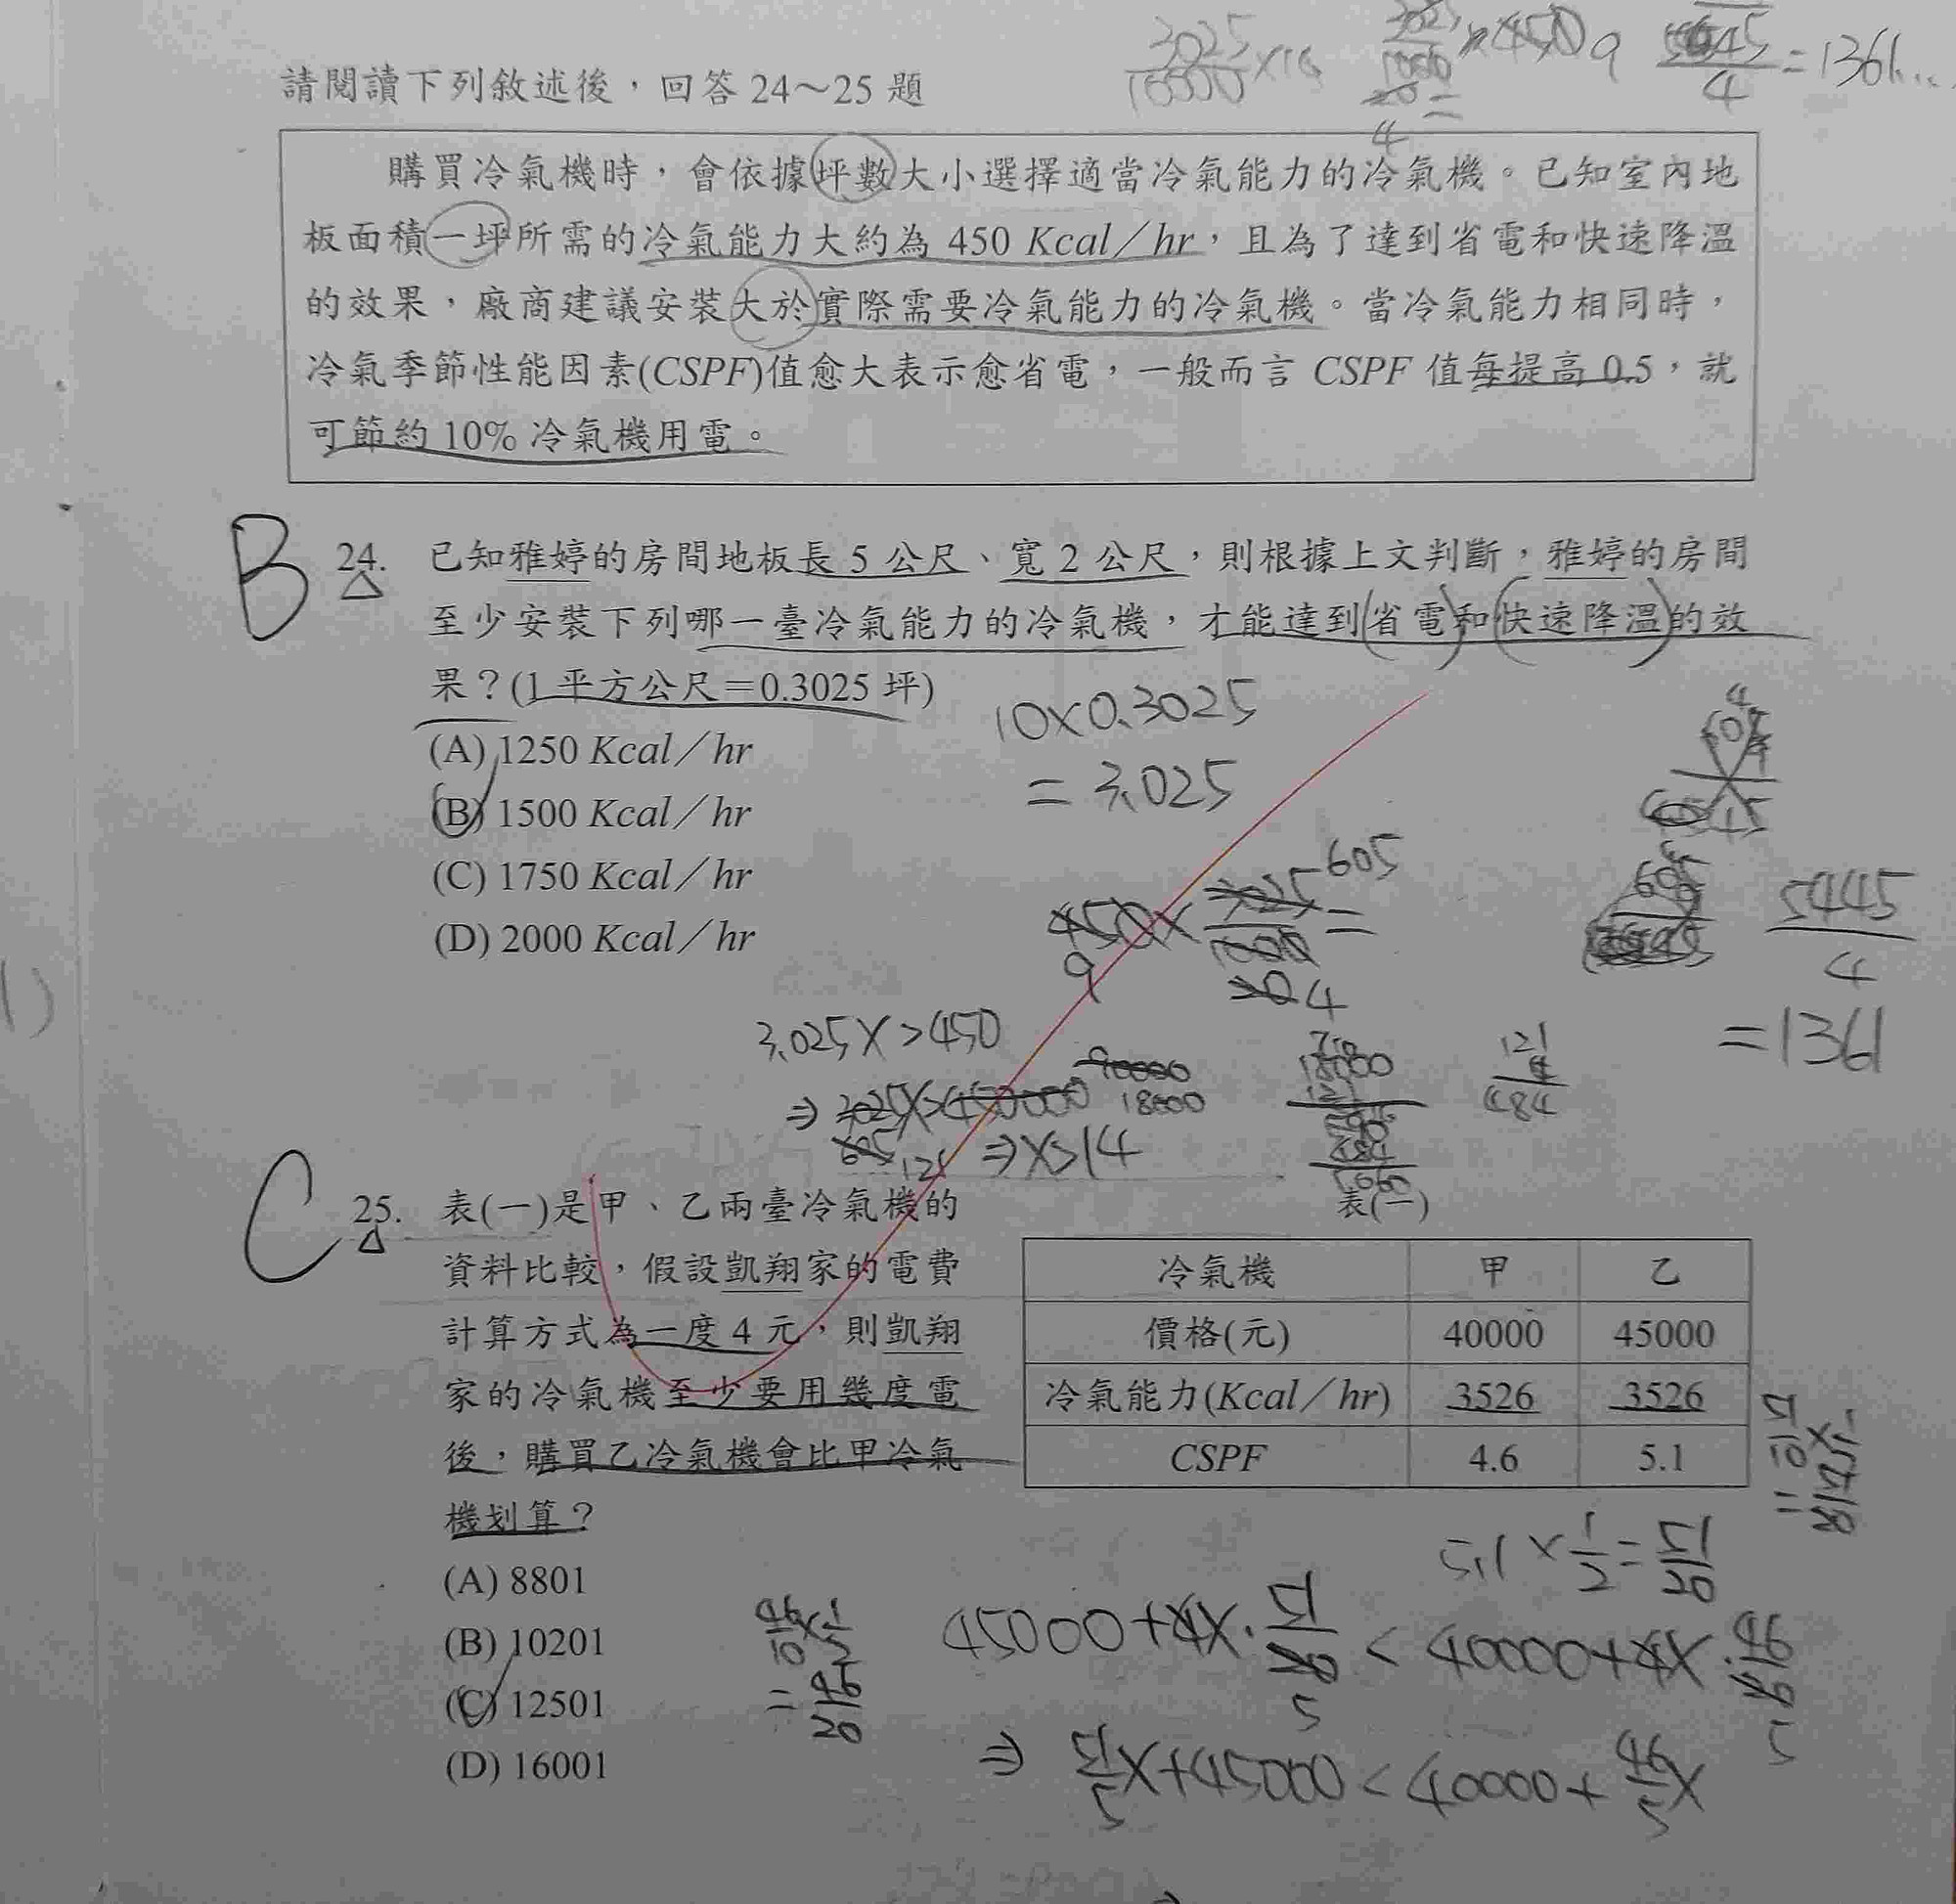 請閱讀下列敘述後，回答 24～25 題
購買冷氣機時，會依據坪數大小選擇適當冷氣能力的冷氣機。已知室內地
板面積一坪所需的冷氣能力大約為 450 Kcal／hr，且為了達到省電和快速降溫
的效果，廠商建議安裝大於實際需要冷氣能力的冷氣機。當冷氣能力相同時，
冷氣季節性能因素(CSPF)值愈大表示愈省電，一般而言 CSPF 值每提高 0.5，就
可節約 10% 冷氣機用電。
B
24. 已知雅婷的房間地板長 5 公尺、寬 2 公尺，則根據上文判斷，雅婷的房間
至少安裝下列哪一臺冷氣能力的冷氣機，才能達到省電和快速降溫的效
果？(1 平方公尺＝0.3025 坪)
(A) 1250 Kcal／hr
(B) 1500 Kcal／hr
(C) 1750 Kcal／hr
(D) 2000 Kcal／hr
10×0.3025
= 3.025
605
5445
4
=1361
3.025X>450
⇒X>14
121
4
484
C
25. 表(一)是甲、乙兩臺冷氣機的
資料比較，假設凱翔家的電費
計算方式為一度 4 元，則凱翔
家的冷氣機至少要用幾度電
後，購買乙冷氣機會比甲冷氣
機划算？
(A) 8801
(B) 10201
(C) 12501
(D) 16001
表(一)
冷氣機 甲 乙
價格(元) 40000 45000
冷氣能力(Kcal／hr) 3526 3526
CSPF 4.6 5.1